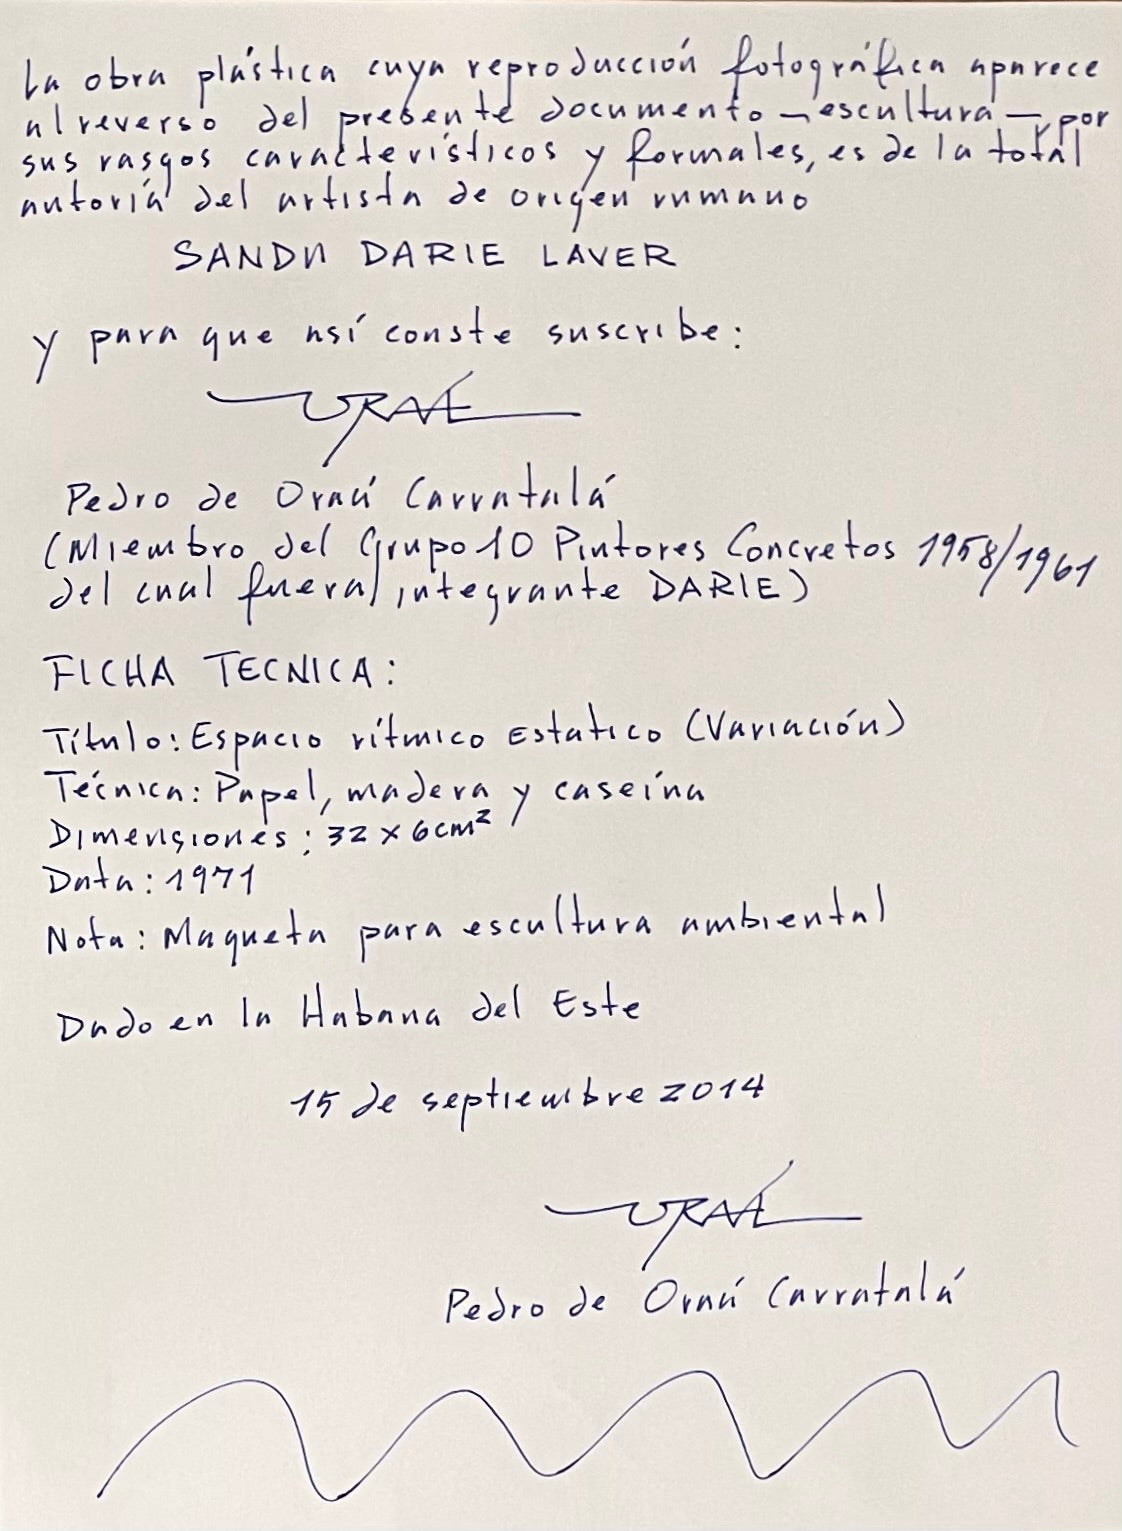 La obra plástica cuya reproducción fotográfica aparece
al reverso del presente documento — escultura —, por
sus rasgos característicos y formales, es de la total
autoría del artista de origen rumano
SANDU DARIE LAVER
y para que así conste suscribe:
ORAÁ
Pedro de Oraá Carratalá
(Miembro del Grupo 10 Pintores Concretos 1958/1961
del cual fuera integrante DARIE)
FICHA TECNICA:
Título: Espacio rítmico Estatico (Variación)
Técnica: Papel, madera y caseína
Dimensiones: 32 x 6 cm²
Data: 1971
Nota: Maqueta para escultura ambiental
Dado en la Habana del Este
15 de septiembre 2014
ORAÁ
Pedro de Oraá Carratalá